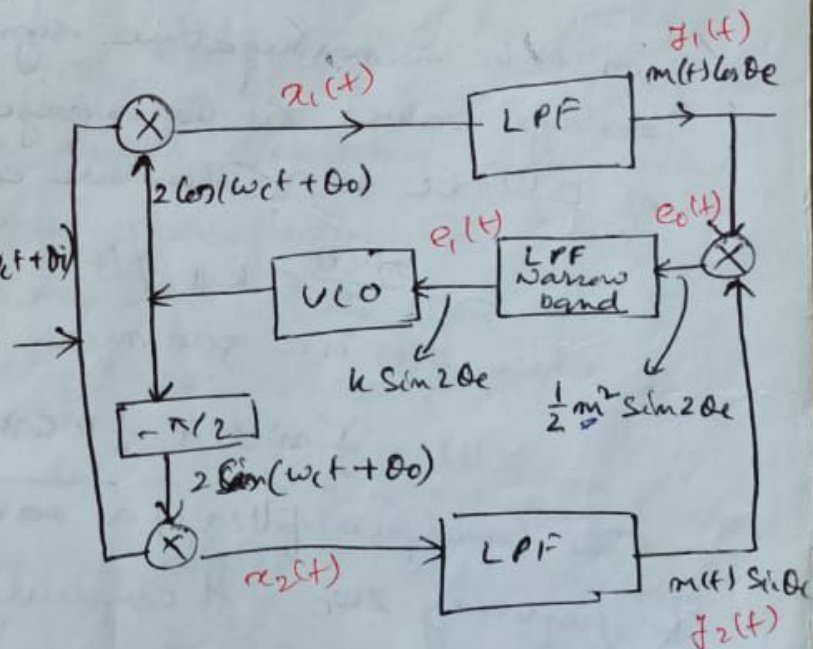 y₁(t)
m(t) Cos θe
x₁(t)
LPF
2 Cos(ωct + θ0)
e₁(t)
e₀(t)
ct + θi)
VCO
LPF
Narrow
band
k Sin 2θe
½ m² Sin 2θe
- π/2
2 Sin(ωct + θ0)
LPF
x₂(t)
m(t) Sin θe
y₂(t)